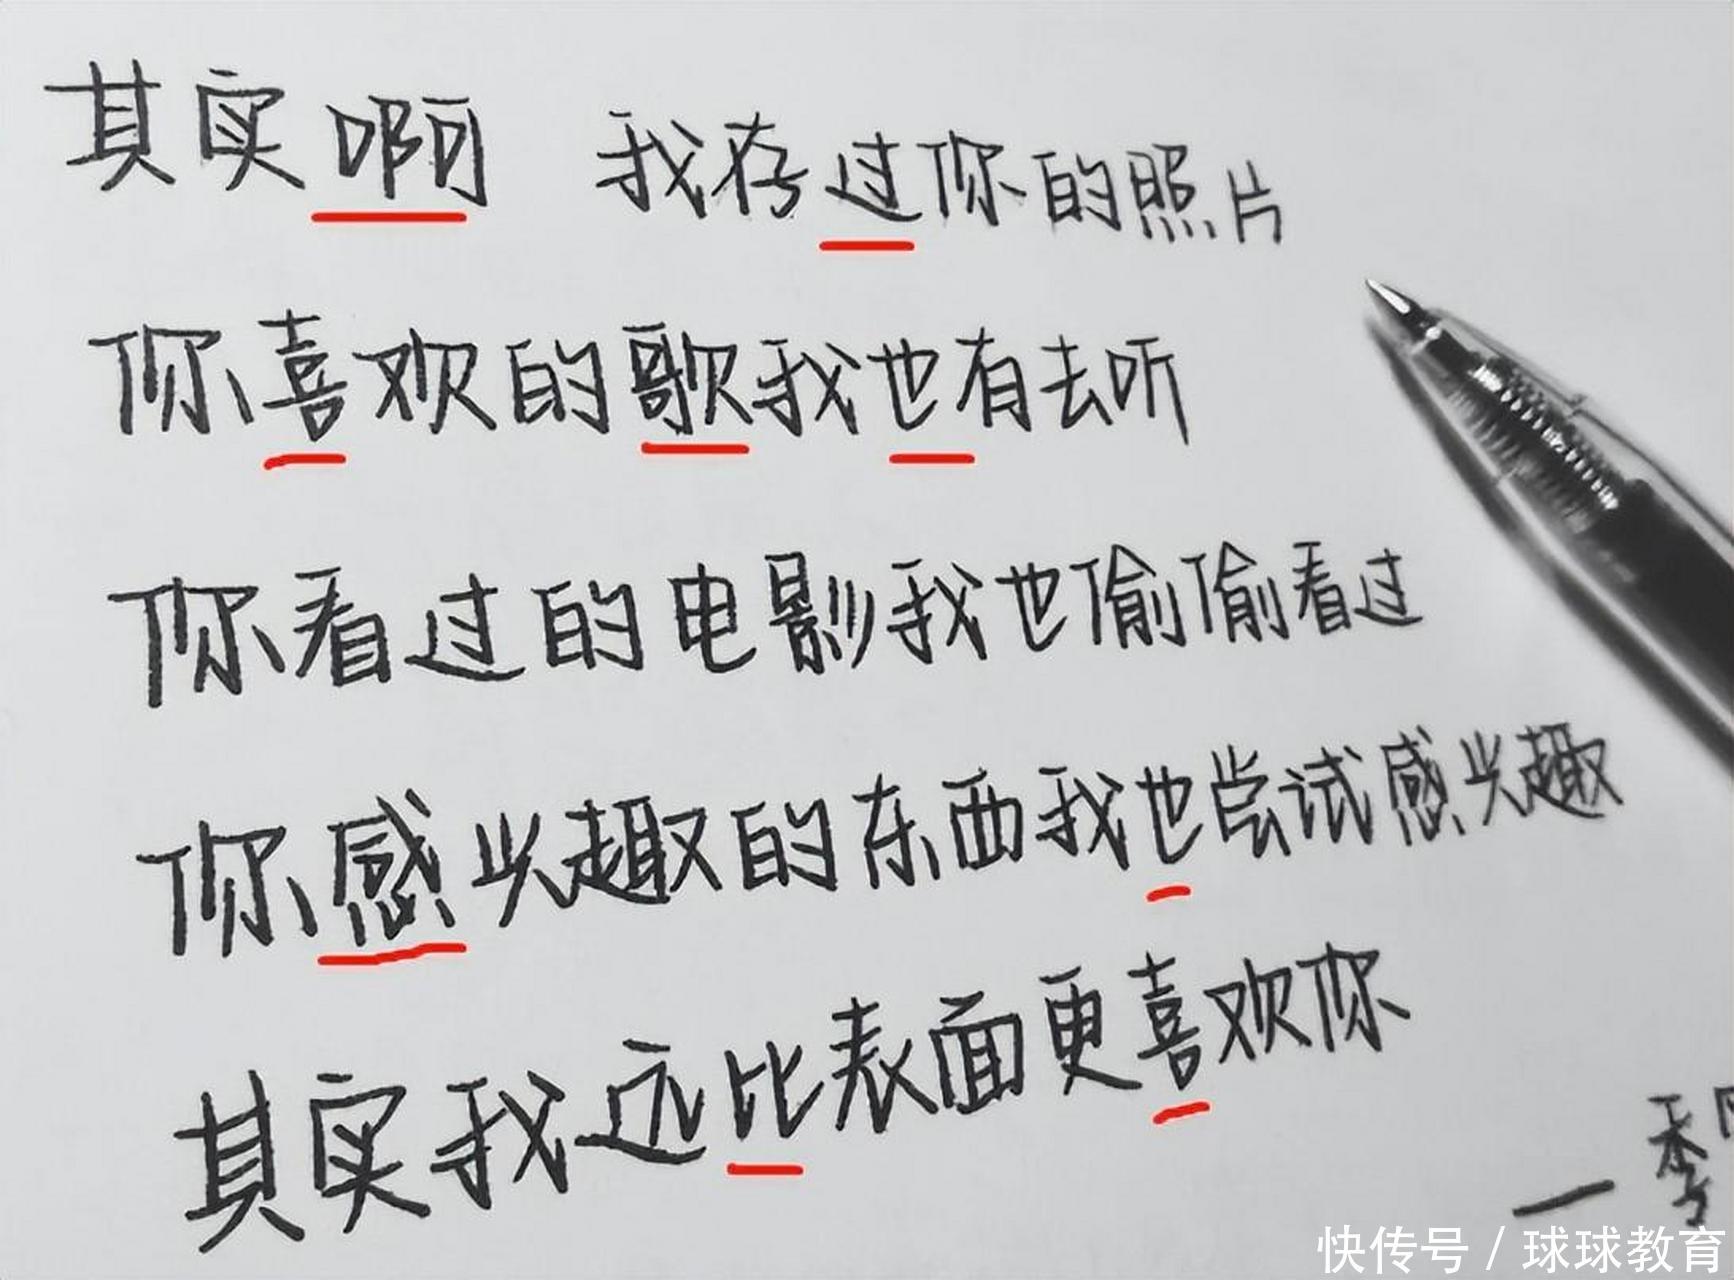 其实啊 我存过你的照片
你喜欢的歌我也有去听
你看过的电影我也偷偷看过
你感兴趣的东西我也尝试感兴趣
其实我远比表面更喜欢你
一季
快传号 / 球球教育